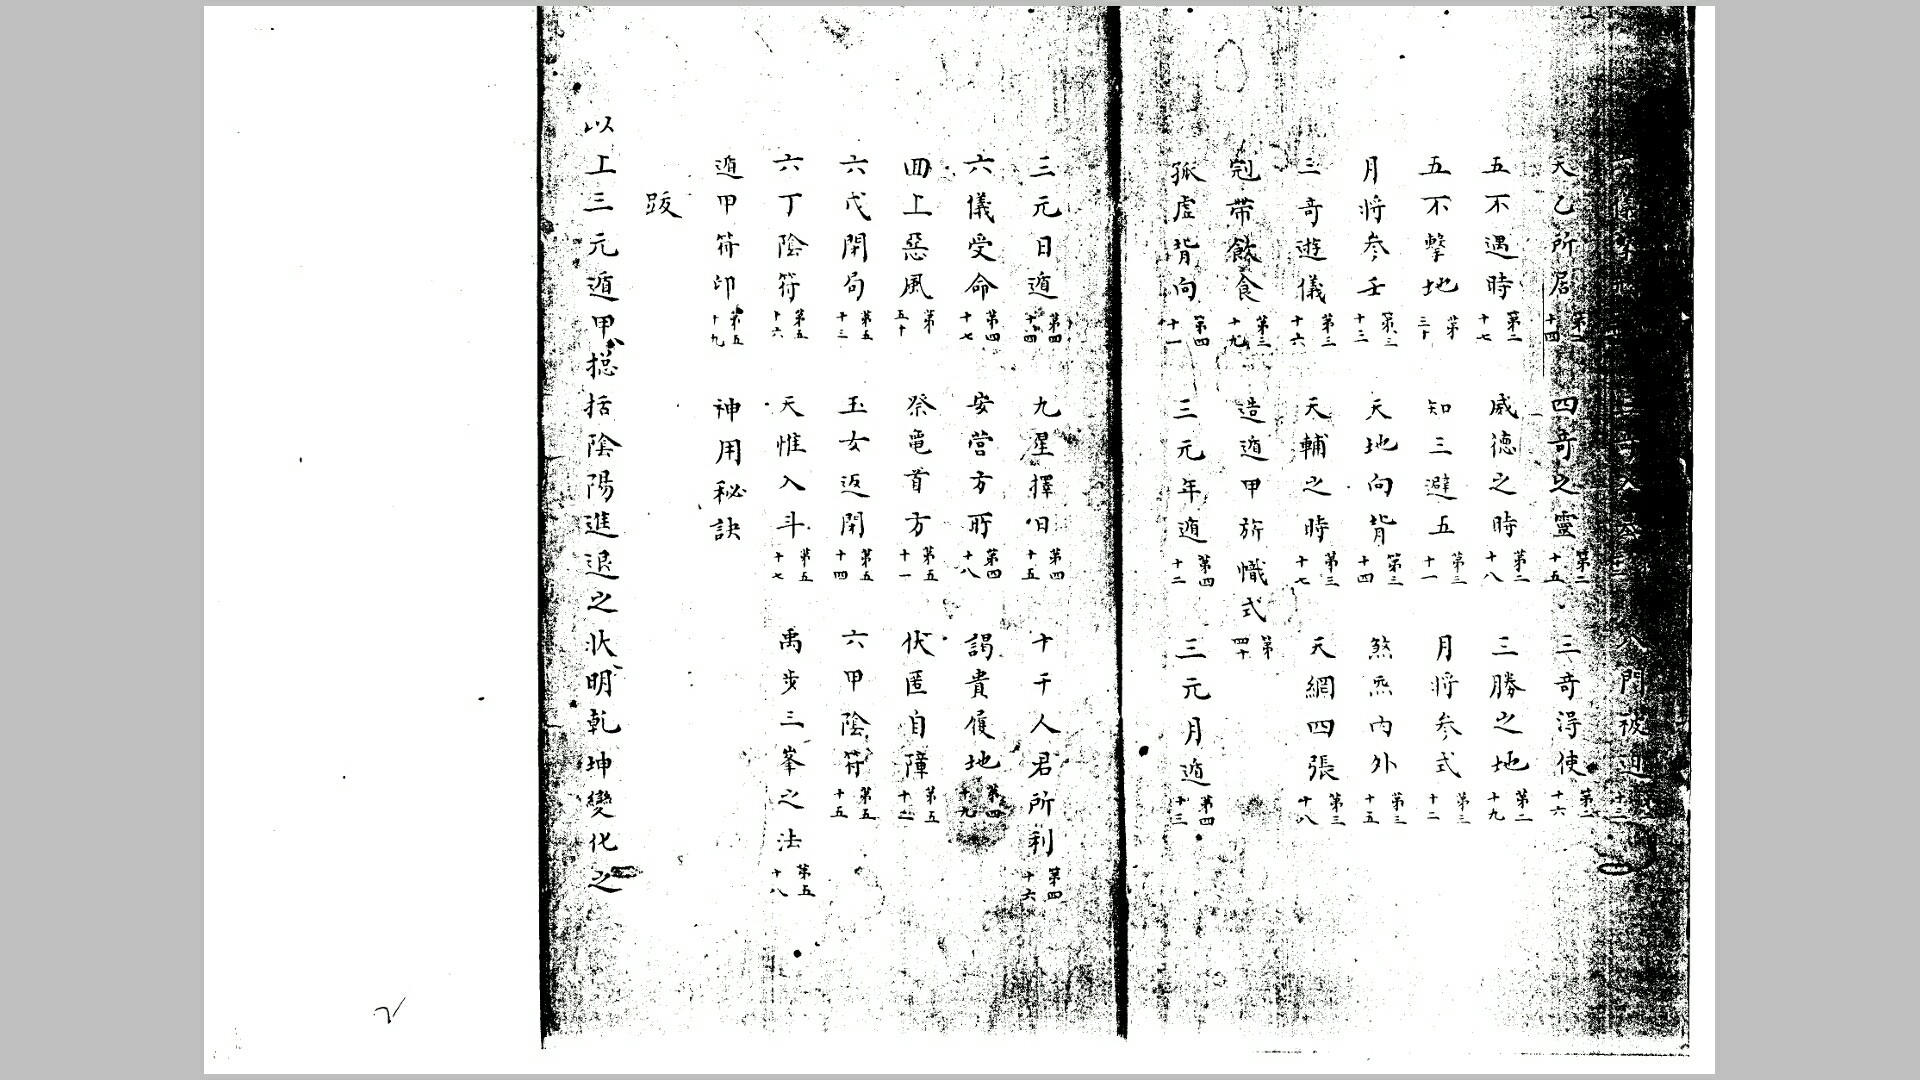 八門被迫
天乙所居第二十四 四奇之靈第二十五 三奇得使第二十六
五不遇時第二十七 威德之時第二十八 三勝之地第二十九
五不擊地第三十 知三避五第三十一 月將參式第三十二
月將參壬第三十三 天地向背第三十四 煞炁內外第三十五
三奇遊儀第三十六 天輔之時第三十七 天網四張第三十八
冠帶飲食第三十九 造遁甲旂幟式第四十
孤虛背向第四十一 三元年遁第四十二 三元月遁第四十三
三元日遁第四十四 九星擇日第四十五 十干人君所利第四十六
六儀受命第四十七 安營方所第四十八 謁貴履地第四十九
四上惡風第五十 祭黿首方第五十一 伏匿自障第五十二
六戊閉局第五十三 玉女返閉第五十四 六甲陰符第五十五
六丁陰符第五十六 天惟入斗第五十七 禹步三峯之法第五十八
遁甲符印第五十九 神用秘訣
跋
以上三元遁甲摠括陰陽進退之狀明乾坤變化之